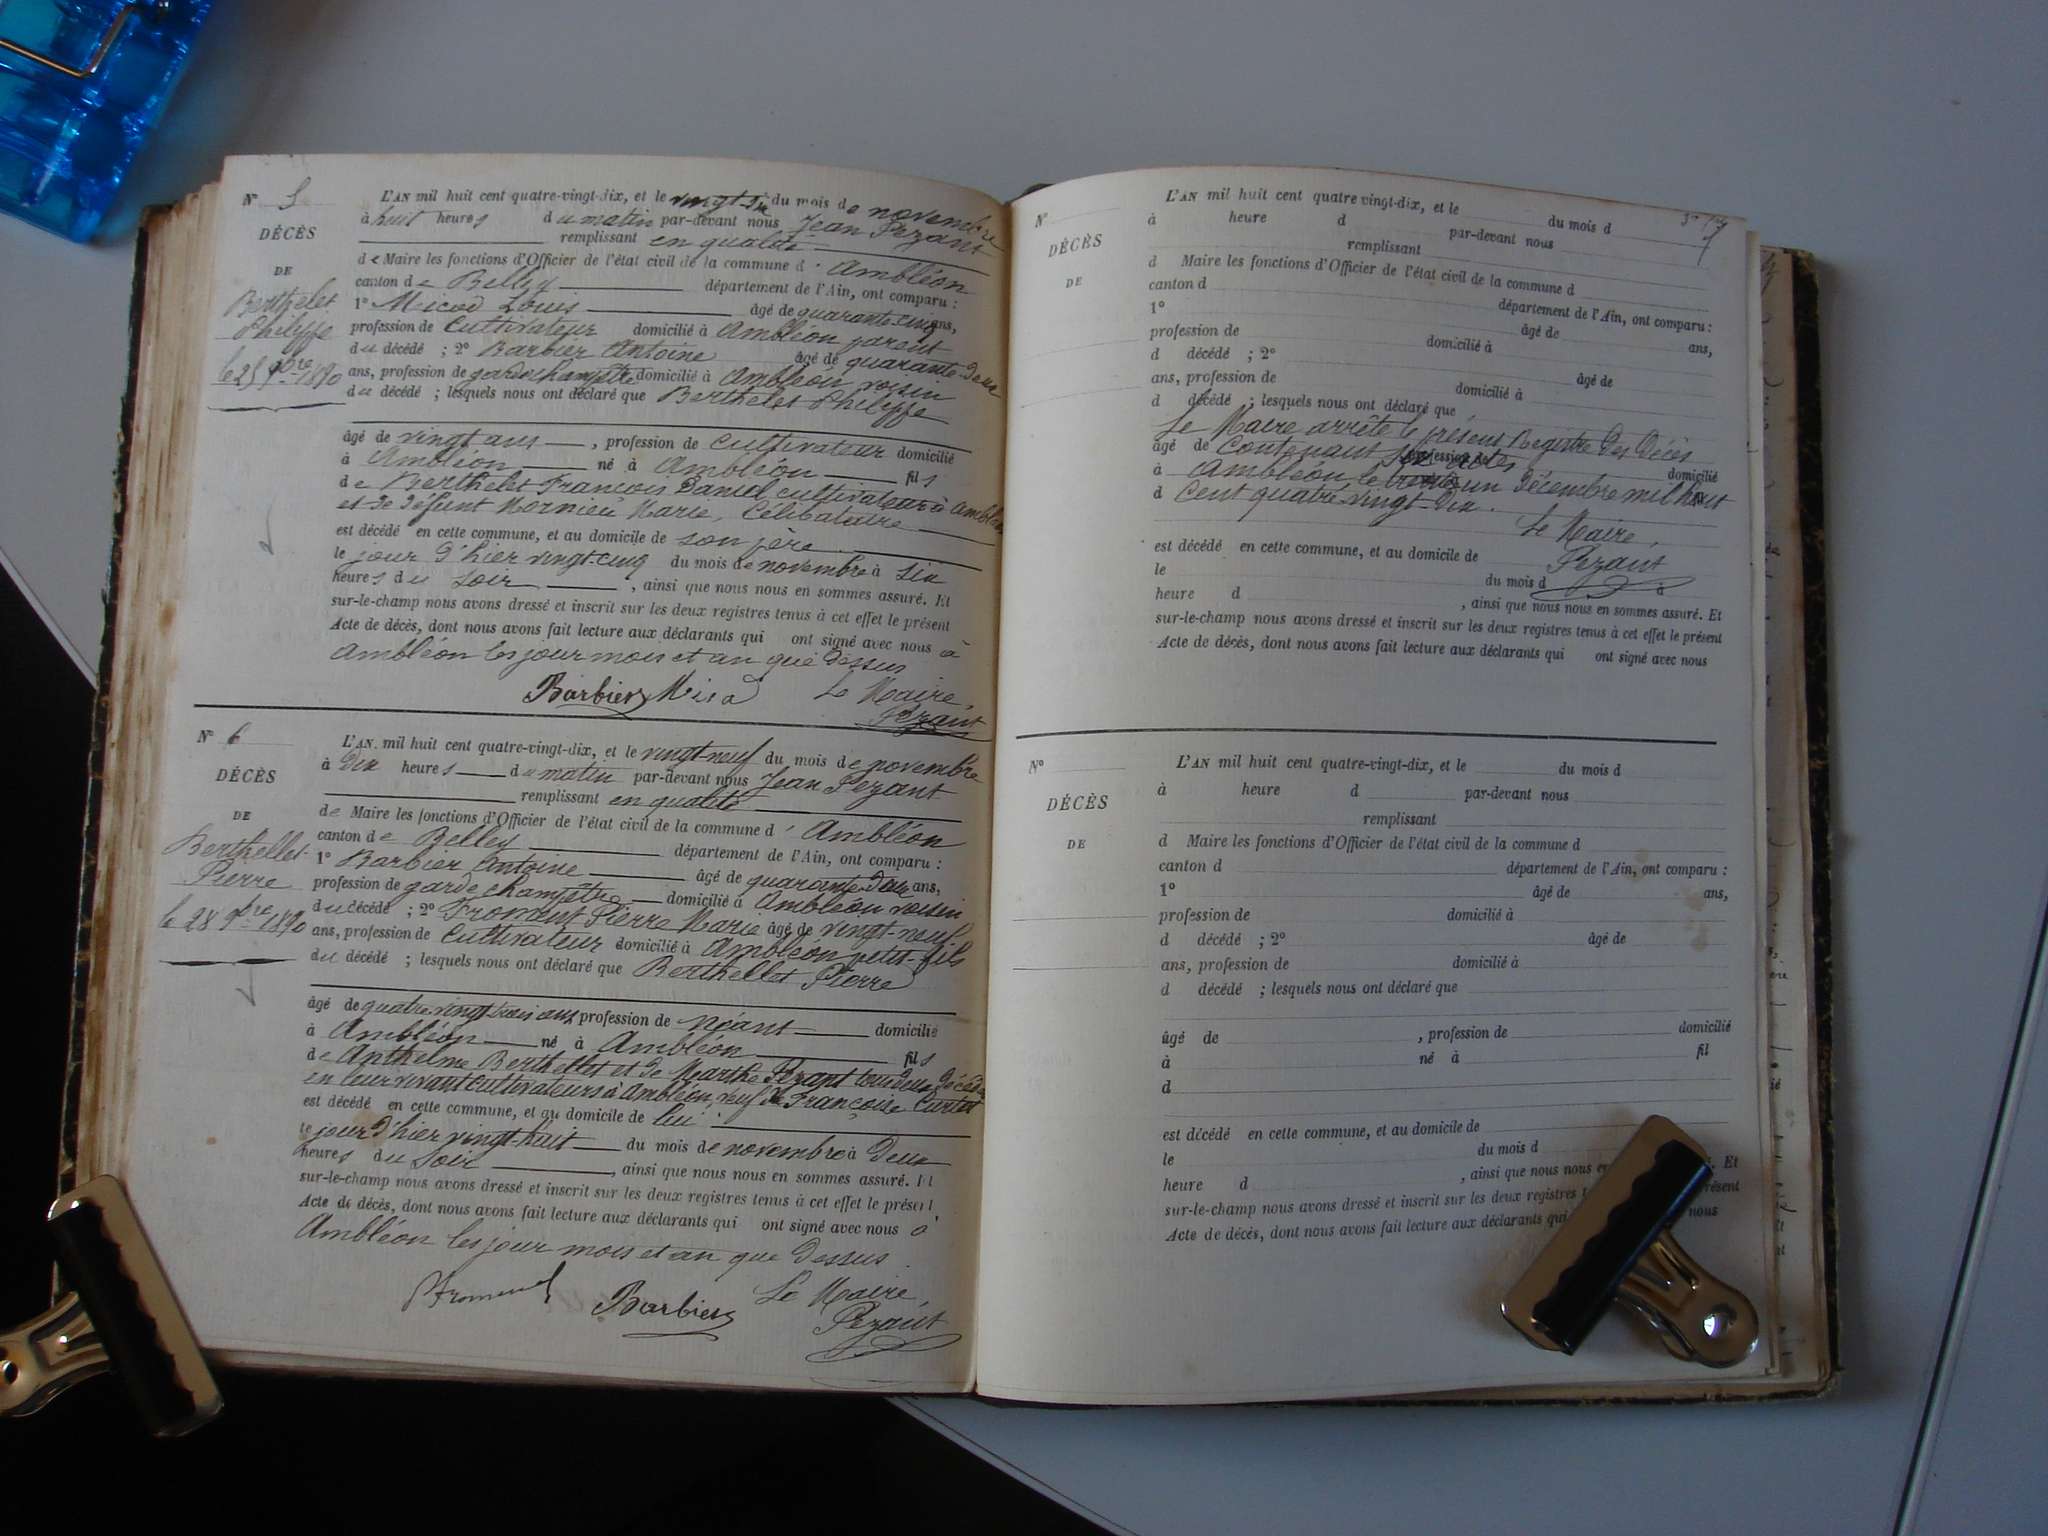 N° 5
DÉCÈS
DE
Berthelet
Philippe
le 25 9bre 1890
L'AN mil huit cent quatre-vingt-dix, et le vingt-six du mois de novembre
à huit heures du matin par-devant nous Jean Pezant
remplissant en qualité
de Maire les fonctions d'Officier de l'état civil de la commune d'Ambléon
canton de Belley département de l'Ain, ont comparu :
1° Micod Louis âgé de quarante-cinq ans,
profession de cultivateur domicilié à Ambléon parent
du décédé ; 2° Barbier Antoine âgé de quarante-deux
ans, profession de garde champêtre domicilié à Ambléon voisin
du décédé ; lesquels nous ont déclaré que Berthelet Philippe
âgé de vingt ans, profession de cultivateur domicilié
à Ambléon né à Ambléon fils
de Berthelet François Daniel cultivateur à Ambléon
et de défunt Mornieu Marie, Célibataire
est décédé en cette commune, et au domicile de son père
le jour d'hier vingt-cinq du mois de novembre à six
heures du soir, ainsi que nous nous en sommes assuré. Et
sur-le-champ nous avons dressé et inscrit sur les deux registres tenus à cet effet le présent
Acte de décès, dont nous avons fait lecture aux déclarants qui ont signé avec nous à
Ambléon les jour mois et an que dessus
Barbier Micod Le Maire,
Pezant
N° 6
DÉCÈS
DE
Berthellet
Pierre
le 28 9bre 1890
L'AN mil huit cent quatre-vingt-dix, et le vingt-neuf du mois de novembre
à dix heures du matin par-devant nous Jean Pezant
remplissant en qualité
de Maire les fonctions d'Officier de l'état civil de la commune d'Ambléon
canton de Belley département de l'Ain, ont comparu :
1° Barbier Antoine âgé de quarante-deux ans,
profession de garde champêtre domicilié à Ambléon voisin
du décédé ; 2° Froment Pierre Marie âgé de vingt-neuf
ans, profession de cultivateur domicilié à Ambléon petit-fils
du décédé ; lesquels nous ont déclaré que Berthellet Pierre
âgé de quatre vingt trois ans, profession de néant domicilié
à Ambléon né à Ambléon fils
de Anthelme Berthellet et de Marthe Pezant tous deux décédés
en leur vivant cultivateurs à Ambléon, veuf de Françoise Curtet
est décédé en cette commune, et au domicile de lui
le jour d'hier vingt-huit du mois de novembre à deux
heures du soir, ainsi que nous nous en sommes assuré. Et
sur-le-champ nous avons dressé et inscrit sur les deux registres tenus à cet effet le présent
Acte de décès, dont nous avons fait lecture aux déclarants qui ont signé avec nous à
Ambléon les jour mois et an que dessus
Froment Barbier Le Maire,
Pezant
N°
DÉCÈS
DE
L'AN mil huit cent quatre-vingt-dix, et le du mois d
à heure d par-devant nous
remplissant
d Maire les fonctions d'Officier de l'état civil de la commune d
canton d département de l'Ain, ont comparu :
1° âgé de ans,
profession de domicilié à
d décédé ; 2° âgé de
ans, profession de domicilié à
d décédé ; lesquels nous ont déclaré que
Le Maire arrête le présent Registre des Décès
âgé de profession de domicilié
Contenant Six actes
à né à fil
Ambléon, le trente un décembre mil huit
d
Cent quatre vingt-dix.
Le Maire,
est décédé en cette commune, et au domicile de
Pezant
le du mois d à
heure d , ainsi que nous nous en sommes assuré. Et
sur-le-champ nous avons dressé et inscrit sur les deux registres tenus à cet effet le présent
Acte de décès, dont nous avons fait lecture aux déclarants qui ont signé avec nous
N°
DÉCÈS
DE
L'AN mil huit cent quatre-vingt-dix, et le du mois d
à heure d par-devant nous
remplissant
d Maire les fonctions d'Officier de l'état civil de la commune d
canton d département de l'Ain, ont comparu :
1° âgé de ans,
profession de domicilié à
d décédé ; 2° âgé de
ans, profession de domicilié à
d décédé ; lesquels nous ont déclaré que
âgé de , profession de domicilié
à né à fil
d
est décédé en cette commune, et au domicile de
le du mois d
heure d , ainsi que nous nous en Et
sur-le-champ nous avons dressé et inscrit sur les deux registres
Acte de décès, dont nous avons fait lecture aux déclarants qui nous